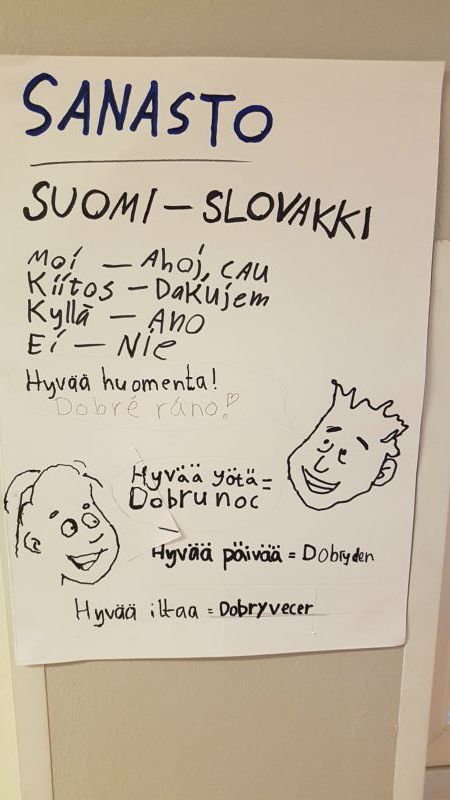 SANASTO
SUOMI – SLOVAKKI
Moi – Ahoj, CAU
Kiitos – Dakujem
Kyllä – Ano
Ei – Nie
Hyvää huomenta!
Dobré ráno!
Hyvää yötä =
Dobrunoc
Hyvää päivää = Dobryden
Hyvää iltaa = Dobryvecer